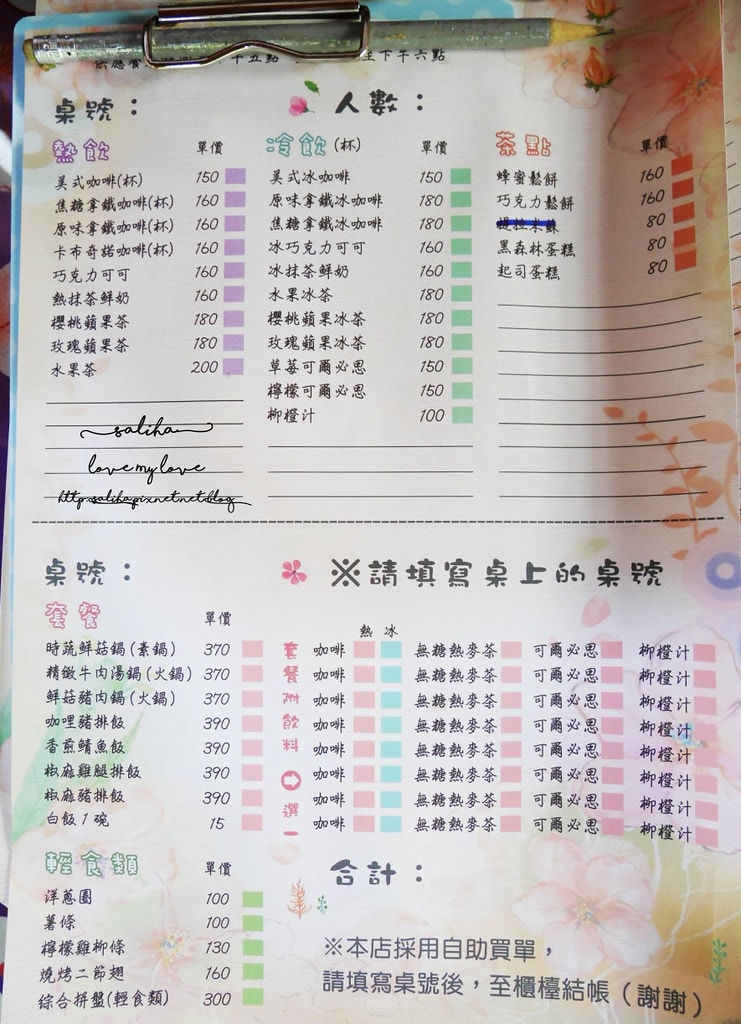 十五點 至下午六點
桌號： 人數：
熱飲 單價
美式咖啡(杯) 150
焦糖拿鐵咖啡(杯) 160
原味拿鐵咖啡(杯) 160
卡布奇諾咖啡(杯) 160
巧克力可可 160
熱抹茶鮮奶 160
櫻桃蘋果茶 180
玫瑰蘋果茶 180
水果茶 200
冷飲(杯) 單價
美式冰咖啡 150
原味拿鐵冰咖啡 180
焦糖拿鐵冰咖啡 180
冰巧克力可可 160
冰抹茶鮮奶 160
水果冰茶 180
櫻桃蘋果冰茶 180
玫瑰蘋果冰茶 180
草莓可爾必思 150
檸檬可爾必思 150
柳橙汁 100
茶點 單價
蜂蜜鬆餅 160
巧克力鬆餅 160
提拉米蘇 80
黑森林蛋糕 80
起司蛋糕 80
saliha
love my love
桌號： ※請填寫桌上的桌號
套餐 單價
熱 冰
套餐附飲料選一
時蔬鮮菇鍋(素鍋) 370 咖啡 無糖熱麥茶 可爾必思 柳橙汁
精緻牛肉湯鍋(火鍋) 370 咖啡 無糖熱麥茶 可爾必思 柳橙汁
鮮菇豬肉鍋(火鍋) 370 咖啡 無糖熱麥茶 可爾必思 柳橙汁
咖哩豬排飯 390 咖啡 無糖熱麥茶 可爾必思 柳橙汁
香煎鯖魚飯 390 咖啡 無糖熱麥茶 可爾必思 柳橙汁
椒麻雞腿排飯 390 咖啡 無糖熱麥茶 可爾必思 柳橙汁
椒麻豬排飯 390 咖啡 無糖熱麥茶 可爾必思 柳橙汁
白飯1碗 15 咖啡 無糖熱麥茶 可爾必思 柳橙汁
輕食類 單價
洋蔥圈 100
薯條 100
檸檬雞柳條 130
燒烤二節翅 160
综合拼盤(輕食類) 300
合計：
※本店採用自助買單，
請填寫桌號後，至櫃檯結帳（謝謝）